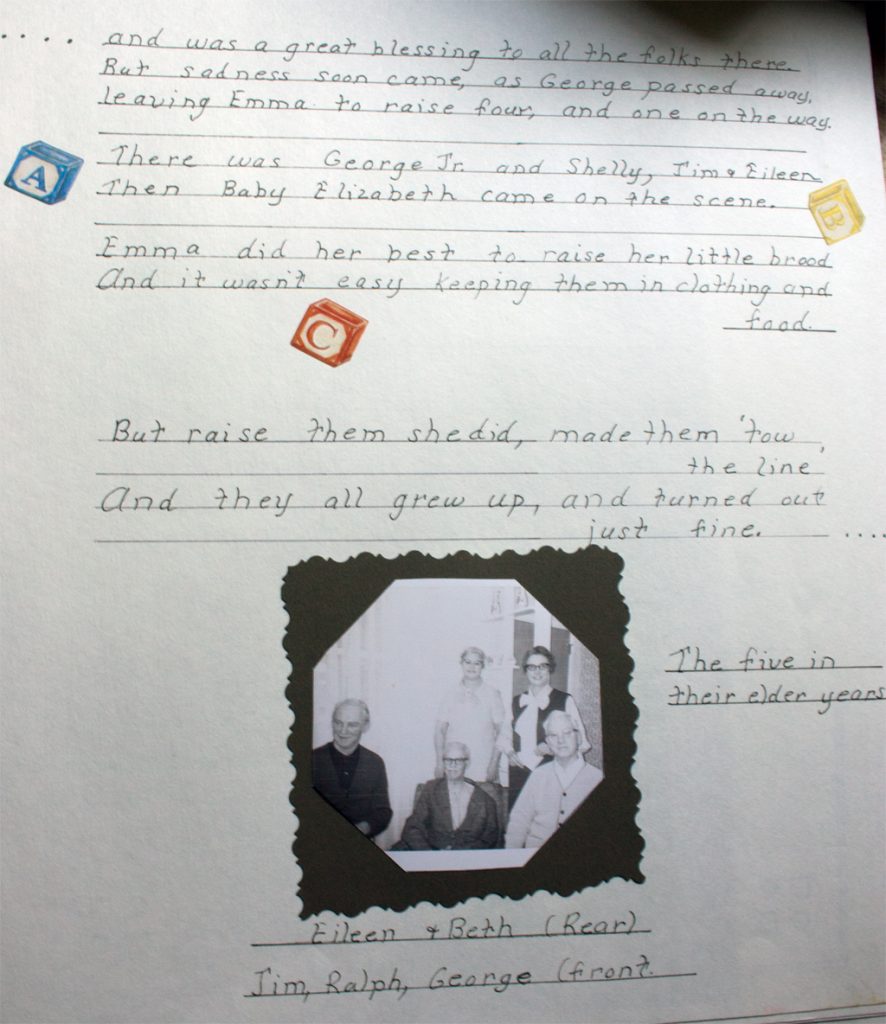 .... and was a great blessing to all the folks there.
But sadness soon came, as George passed away,
leaving Emma to raise four, and one on the way.
There was George Jr. and Shelly, Jim & Eileen
Then Baby Elizabeth came on the scene.
A
B
Emma did her best to raise her little brood
And it wasn't easy keeping them in clothing and
food.
C
But raise them she did, made them 'tow
the line'
And they all grew up, and turned out
just fine. ....
The five in
their elder years
Eileen & Beth (Rear)
Jim, Ralph, George (front.